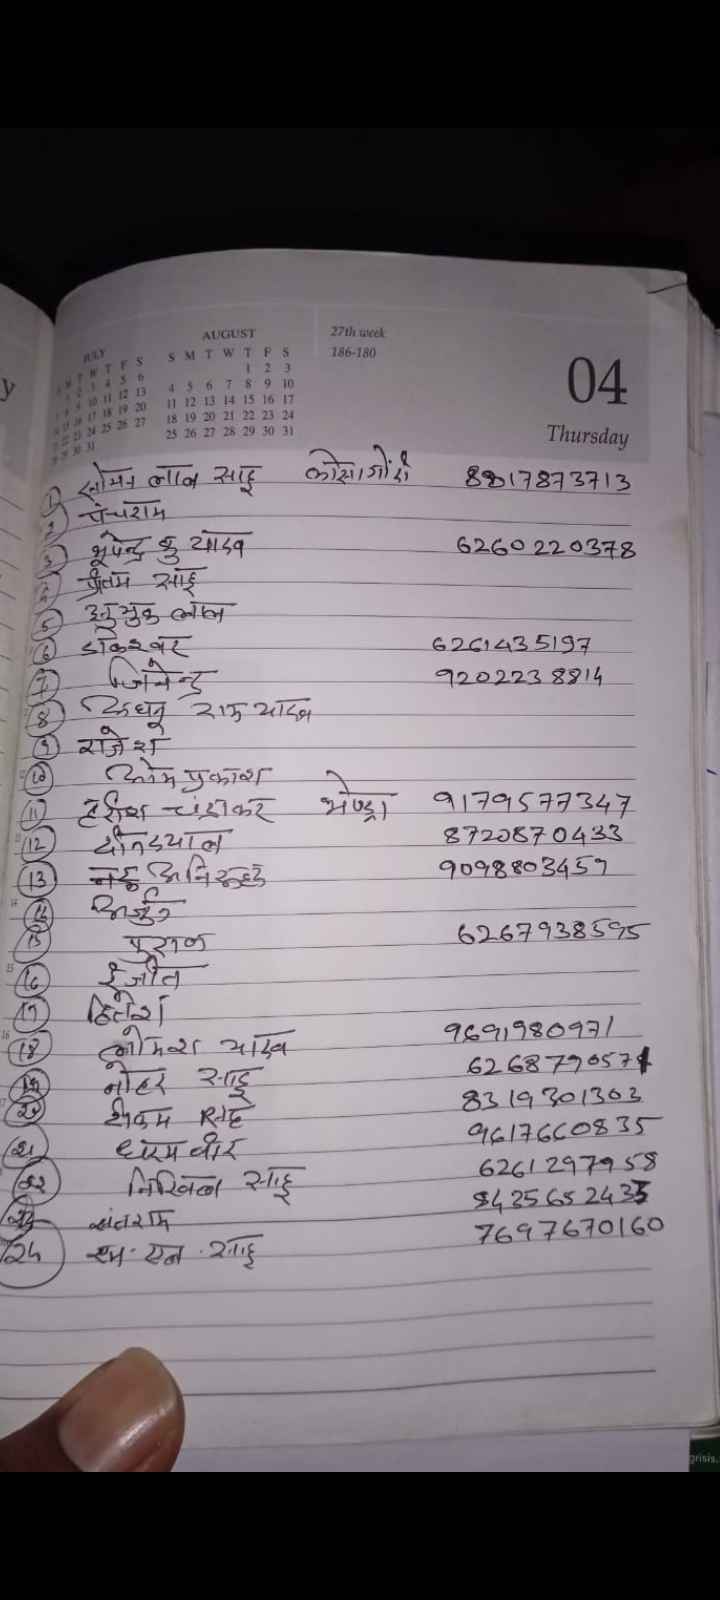 JULY AUGUST 27th week
S M T W T F S 186-180
1 2 3
4 5 6 7 8 9 10
11 12 13 14 15 16 17
18 19 20 21 22 23 24
25 26 27 28 29 30 31
04
Thursday
1 लाल साहू 8817873713
2 पंचराम
3 भूपेन्द्र कु यादव 6260220378
प्रीतम साहू
5 लाल
6 डाकेश्वर 6261435197
7 9202238814
8 राम यादव
9 राजेश
10 ओमप्रकाश
11 हरीश चंद्राकर भेण्ड्रा 9179577347
12 दीनदयाल 8720870433
13 9098803459
अर्जुन
15 6267938595
16
17 हितेश
18 लोमश यादव 9691980971
19 नोहर साहू
20 8319301303
21 धरमवीर 9617660835
22 निखिल साहू 6261297958
23 संतराम
24 एम. एन. साहू 7697670160